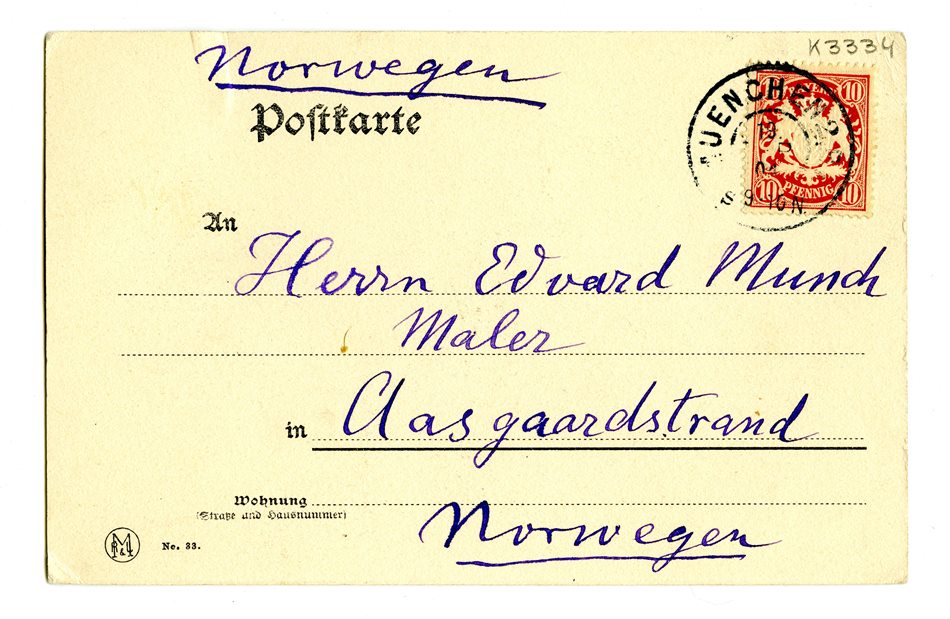 K3334
Norwegen
Postkarte
MUENCHEN
10 10
10 PFENNIG 10
An
Herrn Edvard Munch
Maler
in Aasgaardstrand
Wohnung
(Straße und Hausnummer)
Norwegen
No. 33.